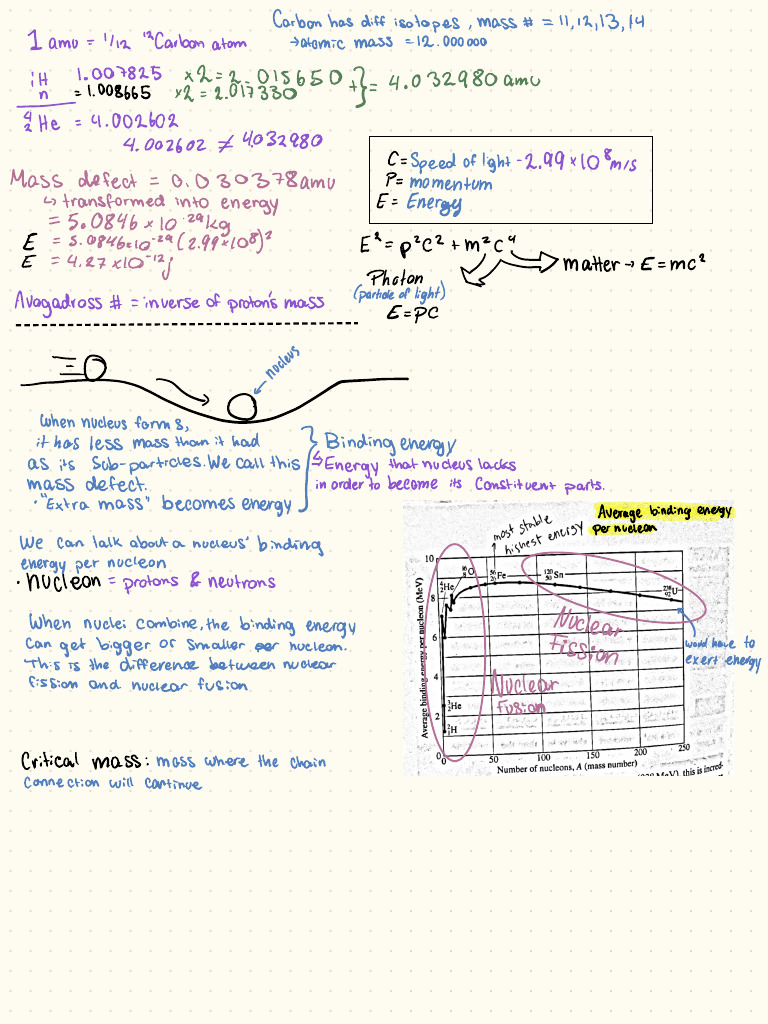 Carbon has diff isotopes, mass # = 11,12,13,14
→atomic mass = 12.000000
1 amu = 1/12 ¹²Carbon atom
¹₁H 1.007825 ×2 = 2.015650
n = 1.008665 ×2 = 2.017330
+} = 4.032980 amu
⁴₂He = 4.002602
4.002602 ≠ 4.032980
C = Speed of light - 2.99 × 10⁸ m/s
P = momentum
E = Energy
Mass defect = 0.030378 amu
↳ transformed into energy
= 5.0846 × 10⁻²⁹ kg
E = 5.0846×10⁻²⁹ (2.99×10⁸)²
E = 4.27×10⁻¹² j
E² = p²c² + m²c⁴
matter → E = mc²
Photon
(particle of light)
E = PC
Avogadross # = inverse of proton's mass
nucleus
When nucleus forms,
it has less mass than it had
as its sub-particles. We call this
mass defect.
• "Extra mass" becomes energy
Binding energy
↳ Energy that nucleus lacks
in order to become its constituent parts.
We can talk about a nucleus' binding
energy per nucleon
• nucleon = protons & neutrons
When nuclei combine, the binding energy
can get bigger or smaller per nucleon.
This is the difference between nuclear
fission and nuclear fusion
Critical mass: mass where the chain
connection will continue
Average binding energy
per nucleon
most stable
highest energy
Average binding energy per nucleon (MeV)
10
8
6
4
2
0
⁴₂He
¹⁶₈O
⁵⁶₂₆Fe
¹²⁰₅₀Sn
²³⁸₉₂U
³₂He
²₁H
Nuclear
Fission
Nuclear
Fusion
would have to
exert energy
0 50 100 150 200 250
Number of nucleons, A (mass number)
MeV), this is incred-